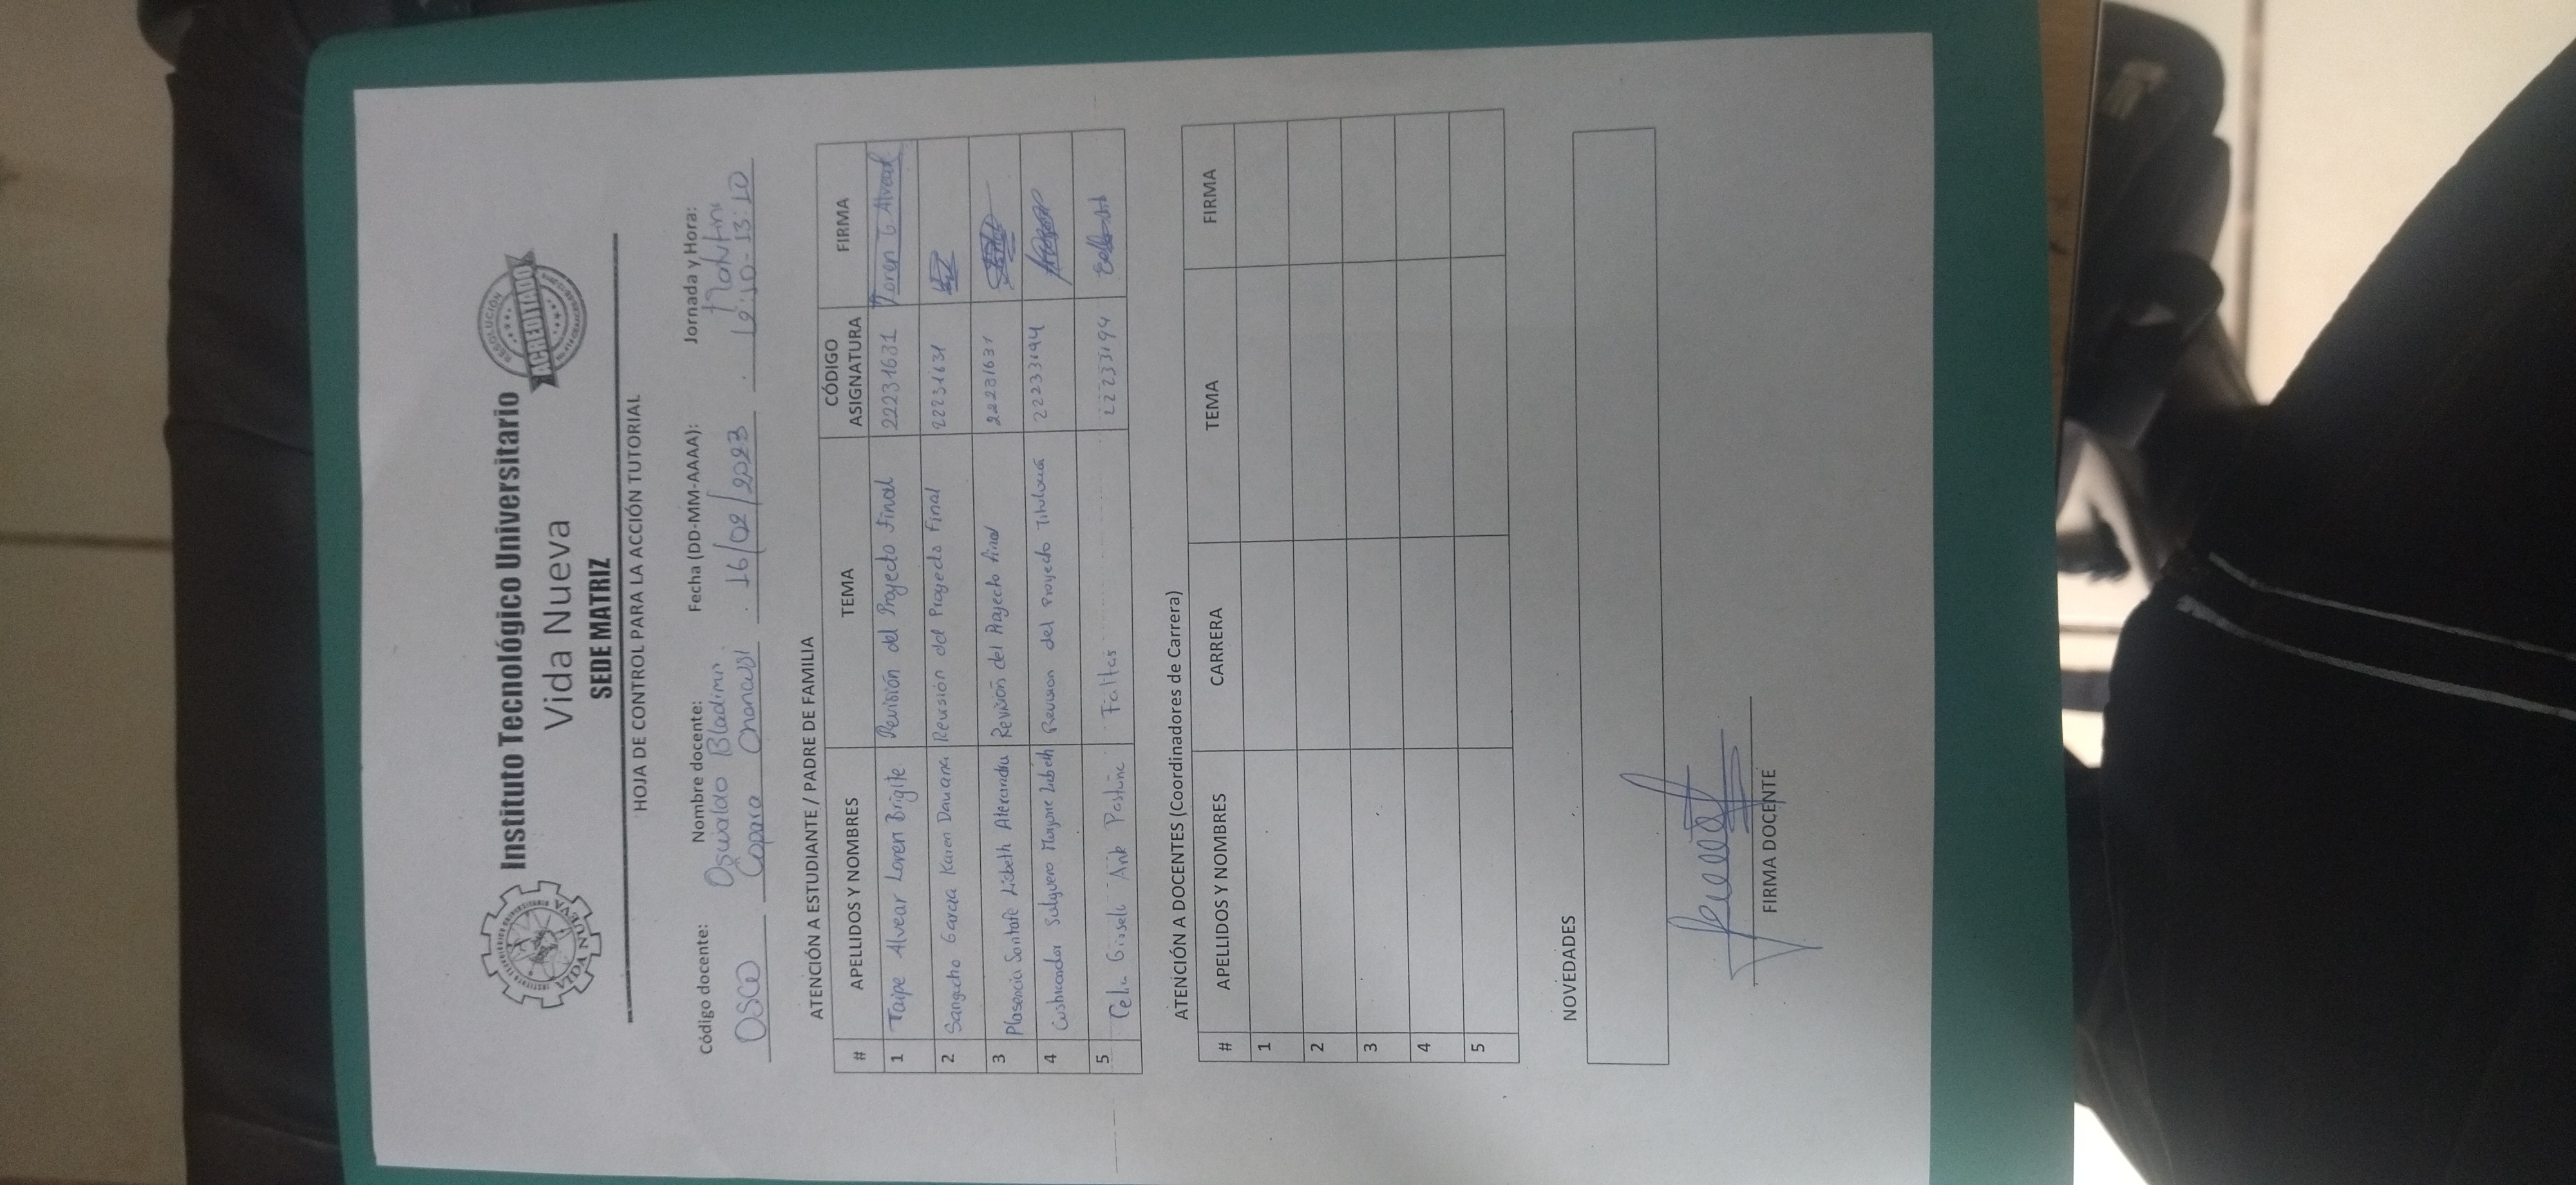 Instituto Tecnológico Universitario
Vida Nueva
SEDE MATRIZ
RESOLUCIÓN
ACREDITADO
VIDA NUEVA
HOJA DE CONTROL PARA LA ACCIÓN TUTORIAL
Código docente: Nombre docente: Fecha (DD-MM-AAAA): Jornada y Hora:
Oswaldo Bladimir Matutini
OSCO Copara 16/02/2023 12:10-13:10
ATENCIÓN A ESTUDIANTE / PADRE DE FAMILIA
# APELLIDOS Y NOMBRES TEMA CÓDIGO ASIGNATURA FIRMA
1 Taipe Alvear Loren Brigite Revisión del Proyecto Final 22231631 Loren G. Alvear
2 Sangucho García Karen Dayana Revisión del Proyecto Final 22231631
3 Plasencia Santafe Lizbeth Alexandra Revisión del Proyecto final 22231631
4 Salguero Maryorie Lizbeth Revision del Proyecto 22233194
5 Celi Gisseli Faltas 22233194
ATENCIÓN A DOCENTES (Coordinadores de Carrera)
# APELLIDOS Y NOMBRES CARRERA TEMA FIRMA
1
2
3
4
5
NOVEDADES
FIRMA DOCENTE